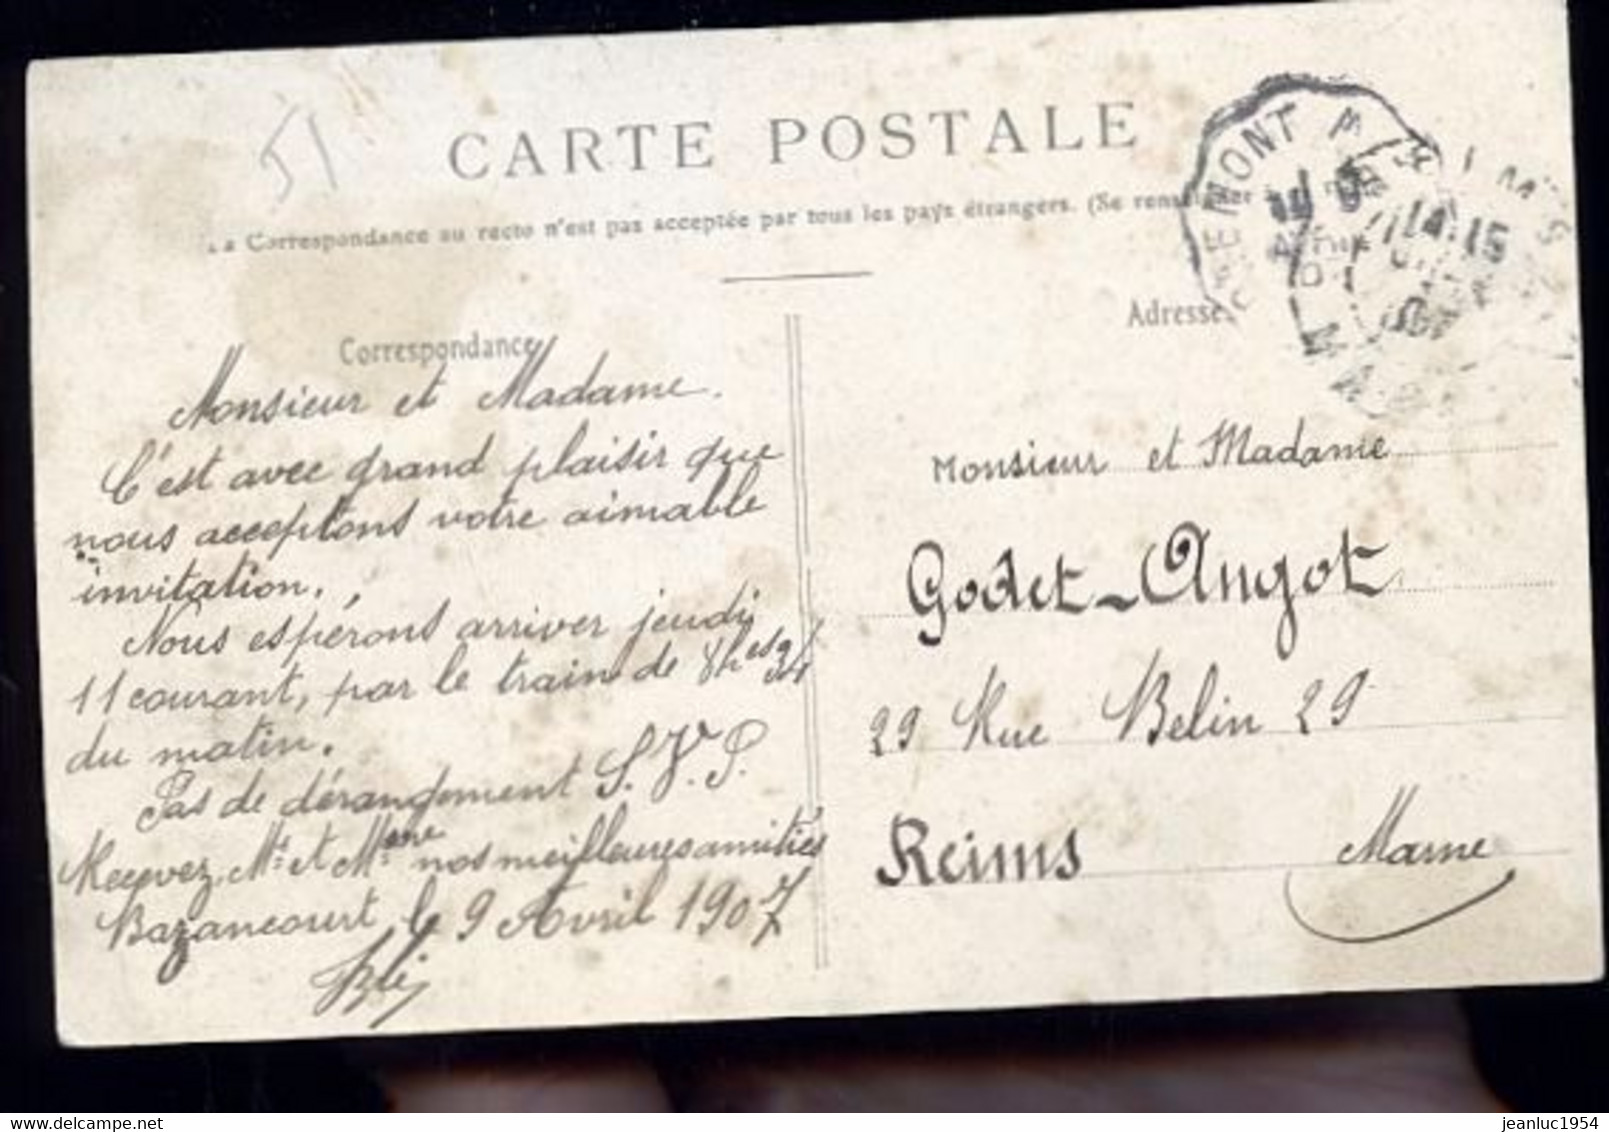 51
CARTE POSTALE
La Correspondance au recto n'est pas acceptée par tous les pays étrangers. (Se renseigner
Correspondance
Monsieur et Madame.
C'est avec grand plaisir que
nous acceptons votre aimable
invitation.
Nous espérons arriver jeudi
11 courant, par le train de 8hes 34
du matin.
Pas de dérangement S.V.P.
Recevez, Mr et Mme nos meilleures amitiés
Bazancourt le 9 Avril 1907
Adresse
Monsieur et Madame
Godet-Angot
29 Rue Belin 29
Reims Marne
delcampe.net
jeanluc1954